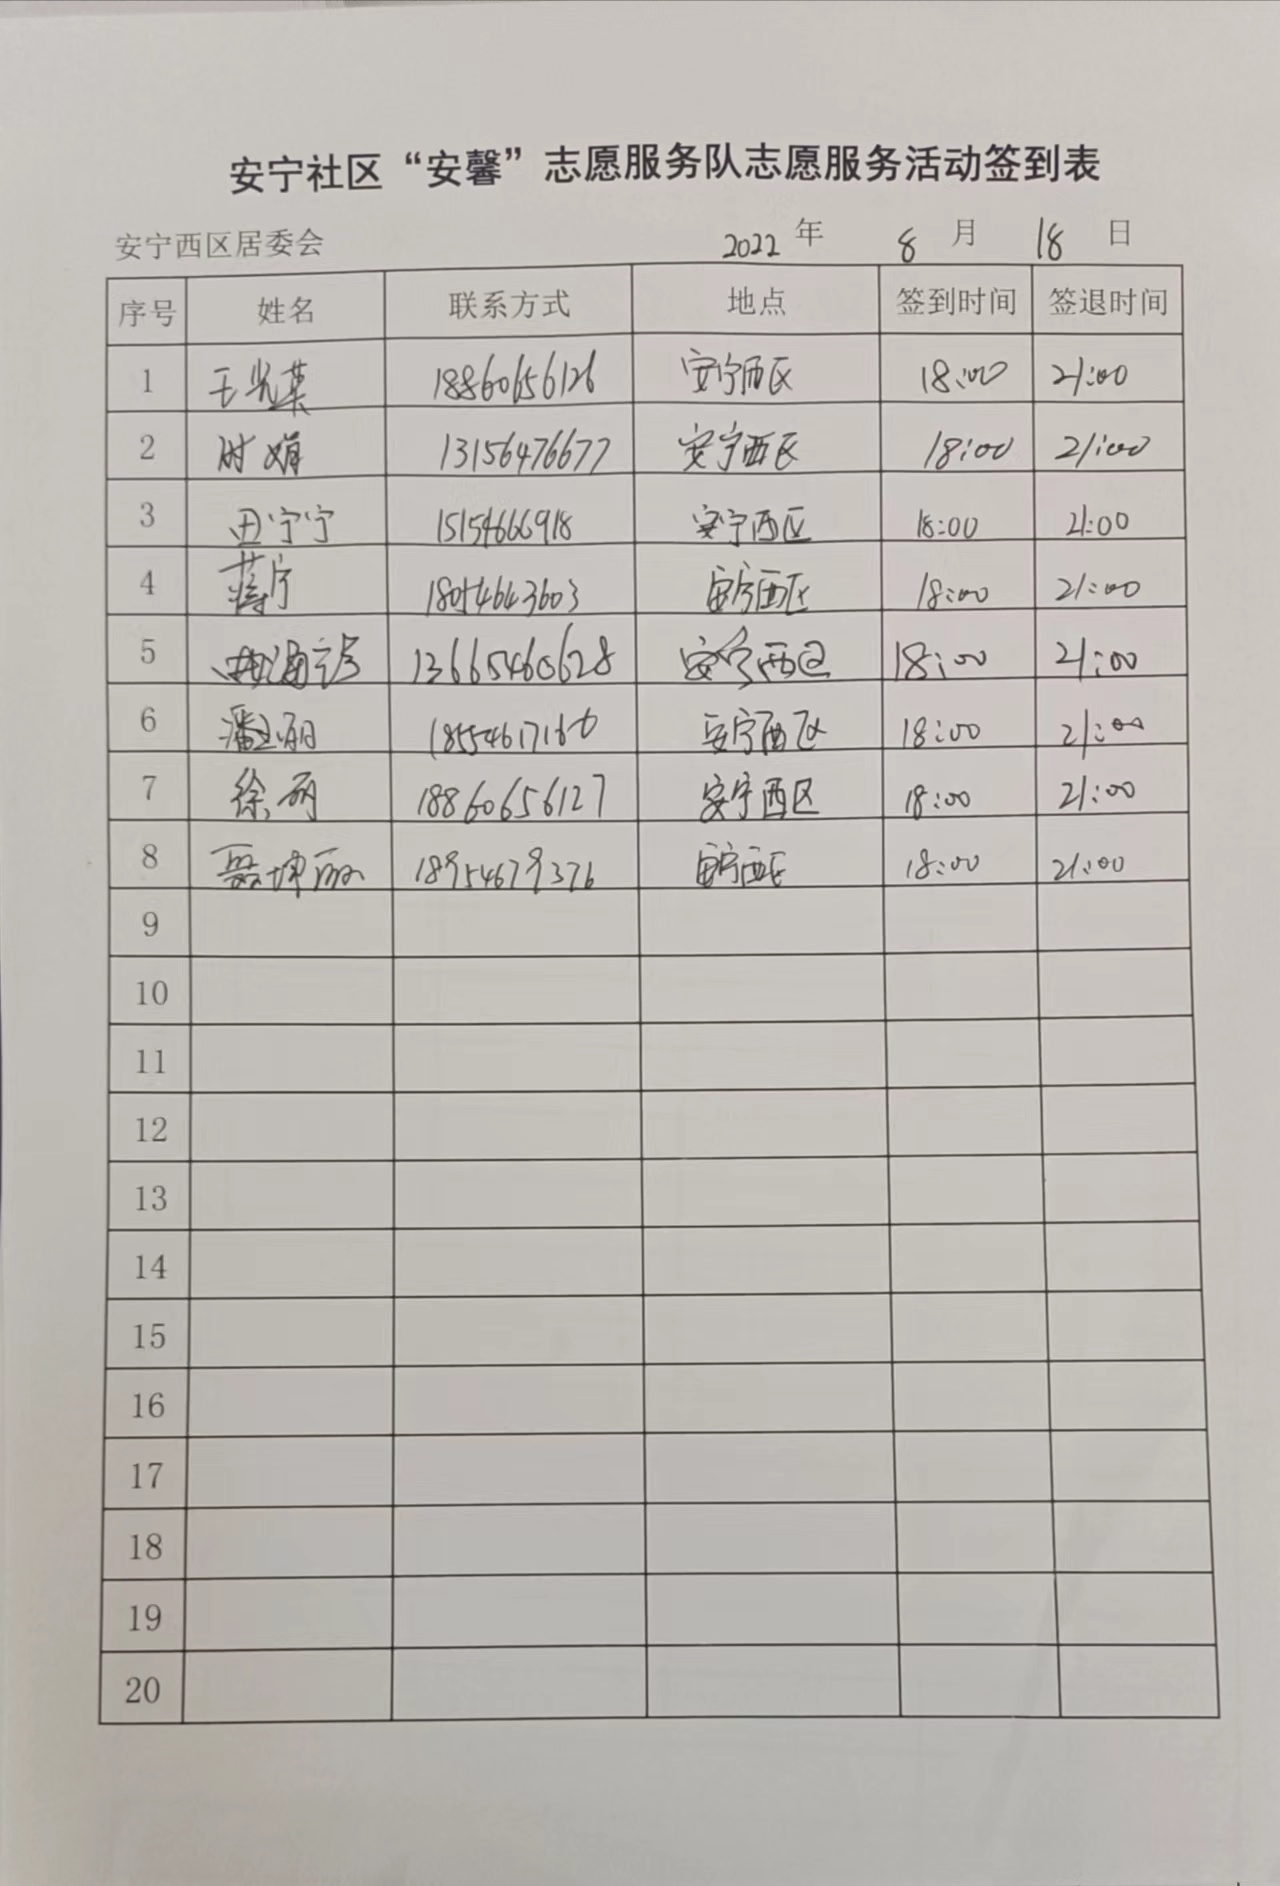 安宁社区“安馨”志愿服务队志愿服务活动签到表
安宁西区居委会 2022 年 8 月 18 日
序号 姓名 联系方式 地点 签到时间 签退时间
1 王光荣 18860656126 安宁西区 18:00 21:00
2 时娟 13156476677 安宁西区 18:00 21:00
3 田宁宁 15154666918 安宁西区 18:00 21:00
4 蒋宁 18054643603 安宁西区 18:00 21:00
5 13665460628 安宁西区 18:00 21:00
6 安宁西区 18:00 21:00
7 徐丽 18860656127 安宁西区 18:00 21:00
8 聂坤丽 18954679376 安宁西区 18:00 21:00
9
10
11
12
13
14
15
16
17
18
19
20